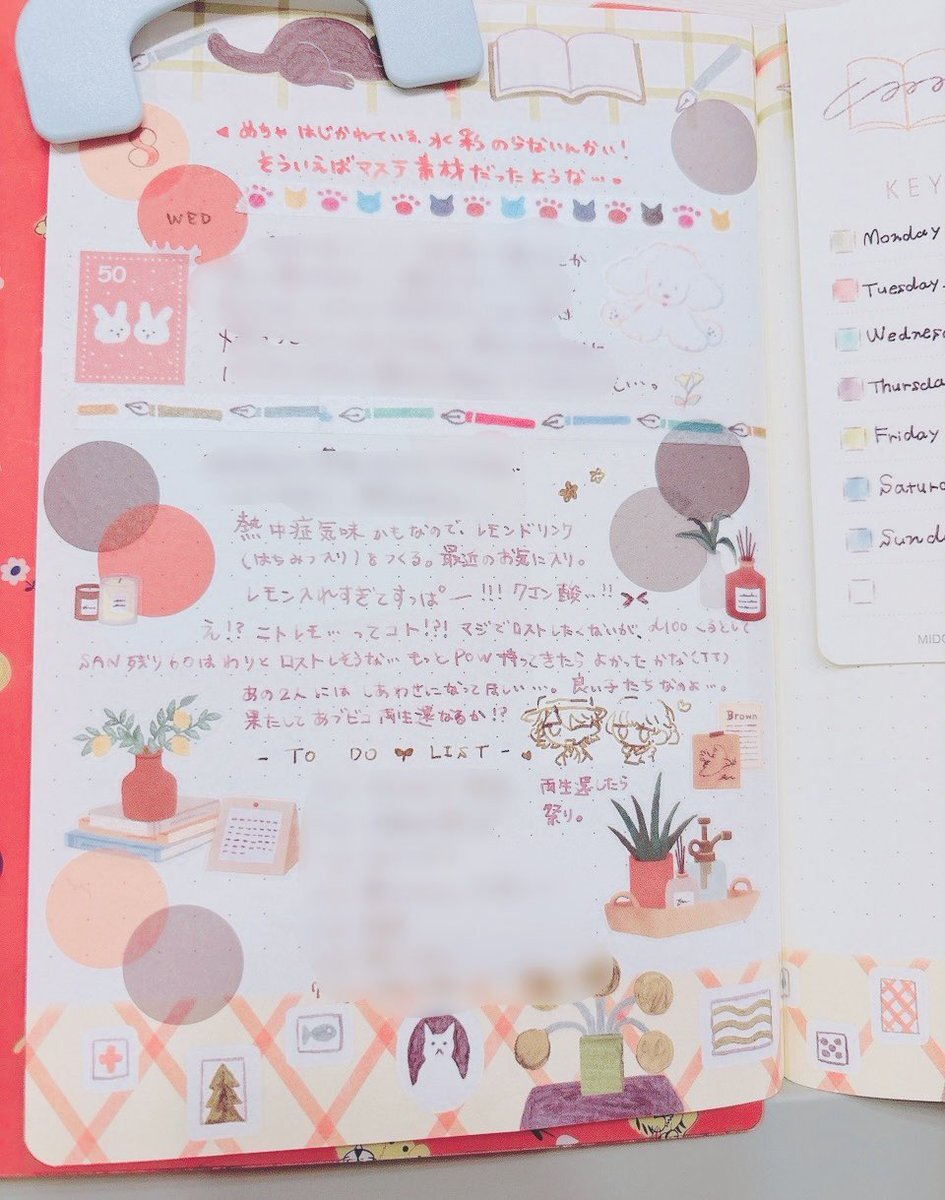 8
◀ めちゃ はじかれている、水彩 のらないんかい!
そういえばマステ素材だったような…。
WED
50
熱中症気味かもなので、レモンドリンク
(はちみつ入り)をつくる。最近のお気に入り。
レモン入れすぎてすっぱー!!! クエン酸…!!
え!? ニトレモ…ってコト!?! マジでロストしたくないが、d100くるとして
SAN残り60はわりとロストしそうな… もっとPOW持ってきたらよかったかな(TT)
あの2人にはしあわせになってほしい…。良い子たちなのよ…。
果たしてあブピコ両生還なるか!?
- TO DO LIST -
両生還したら
祭り。
Brown
KEY
Monday
Tuesday
Wednes
Thursda
Friday
Satur
Sund
MIDO